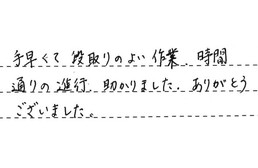 手早くて段取りのよい作業、時間
通りの進行、助かりました。ありがとう
ございました。